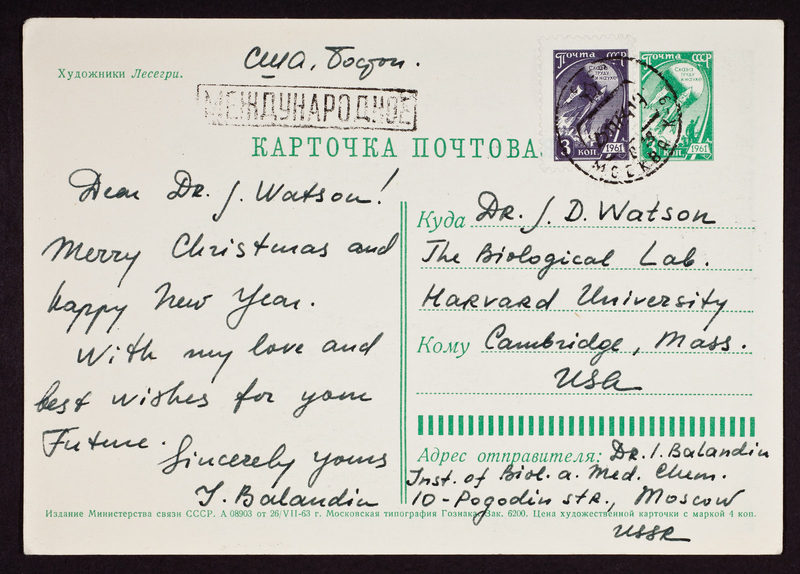 США, Бостон.
Художники Лесегри.
МЕЖДУНАРОДНОЕ
КАРТОЧКА ПОЧТОВА
Почта СССР
Слава
труду
и науке
3 коп. 1961
Почта СССР
Слава
труду
и науке
коп. 1961
МОСКВА
Dear Dr. J. Watson!
Merry Christmas and
happy New Year.
With my love and
best wishes for your
Future.
Sincerely yours
I. Balandin
Куда Dr. J. D. Watson
The Biological Lab.
Harvard University
Кому Cambridge, Mass.
USA
Адрес отправителя: Dr. I. Balandin
Inst. of Biol. a. Med. Chem.
10-Pogodin str., Moscow
USSR
Издание Министерства связи СССР. А 08903 от 26/VII-63 г. Московская типография Гознака. Зак. 6200. Цена художественной карточки с маркой 4 коп.